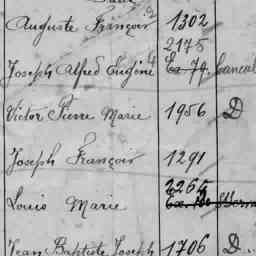 Auguste François 1302
2175
Joseph Alfred Eugène
Victor Pierre Marie 1956 D
Joseph François 1291
2265
Louis Marie
Jean Baptiste Joseph 1706 D